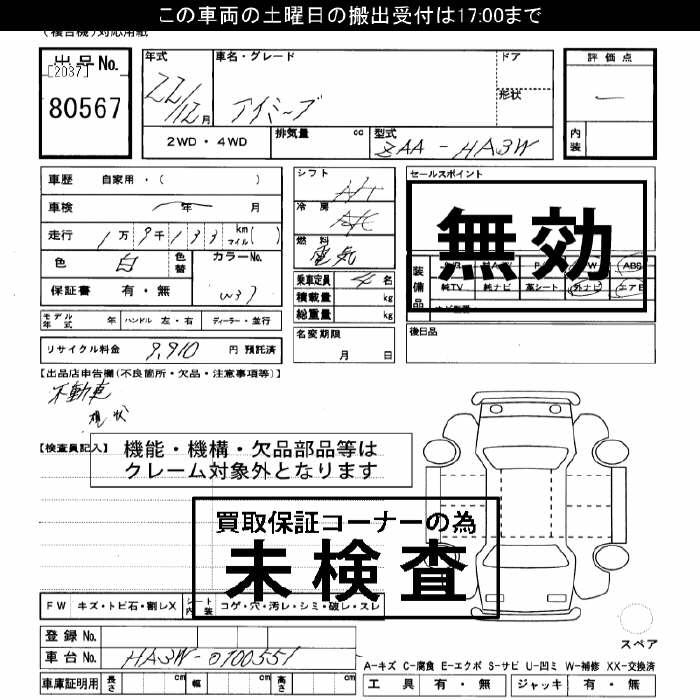 この車両の土曜日の搬出受付は17:00まで
(複合機)対応用紙
出品No.
[2037]
80567
年式
22/12月
車名・グレード
アイミーブ
ドア
形状
評価点
内装
2WD・4WD
排気量 cc
型式
ZAA - HA3W
車歴 自家用・( )
車検 年 月
走行 1万9千133 km マイル( )
色 白 色替
カラーNo.
W37
保証書 有・無
シフト A/T
冷房 A/C
燃料 電気
乗車定員 4名
積載量 kg
総重量 kg
セールスポイント
無効
装備品
ABS
純TV 純ナビ 革シート 外ナビ エアB
モデル年式 年 ハンドル 左・右 ディーラー・並行
名変期限 月 日
後日品
リサイクル料金 9,910 円 預託済
【出品店申告欄(不良箇所・欠品・注意事項等)】
不動車
現状
【検査員記入】
機能・機構・欠品部品等は
クレーム対象外となります
買取保証コーナーの為
未検査
FW キズ・トビ石・割レX シート内装 コゲ・穴・汚レ・シミ・破レ・スレ
登録No.
車台No. HA3W-0100551
車庫証明用 長さ cm 幅 cm 高さ cm
スペア
A-キズ C-腐食 E-エクボ S-サビ U-凹ミ W-補修 XX-交換済
工具 有・無 ジャッキ 有・無